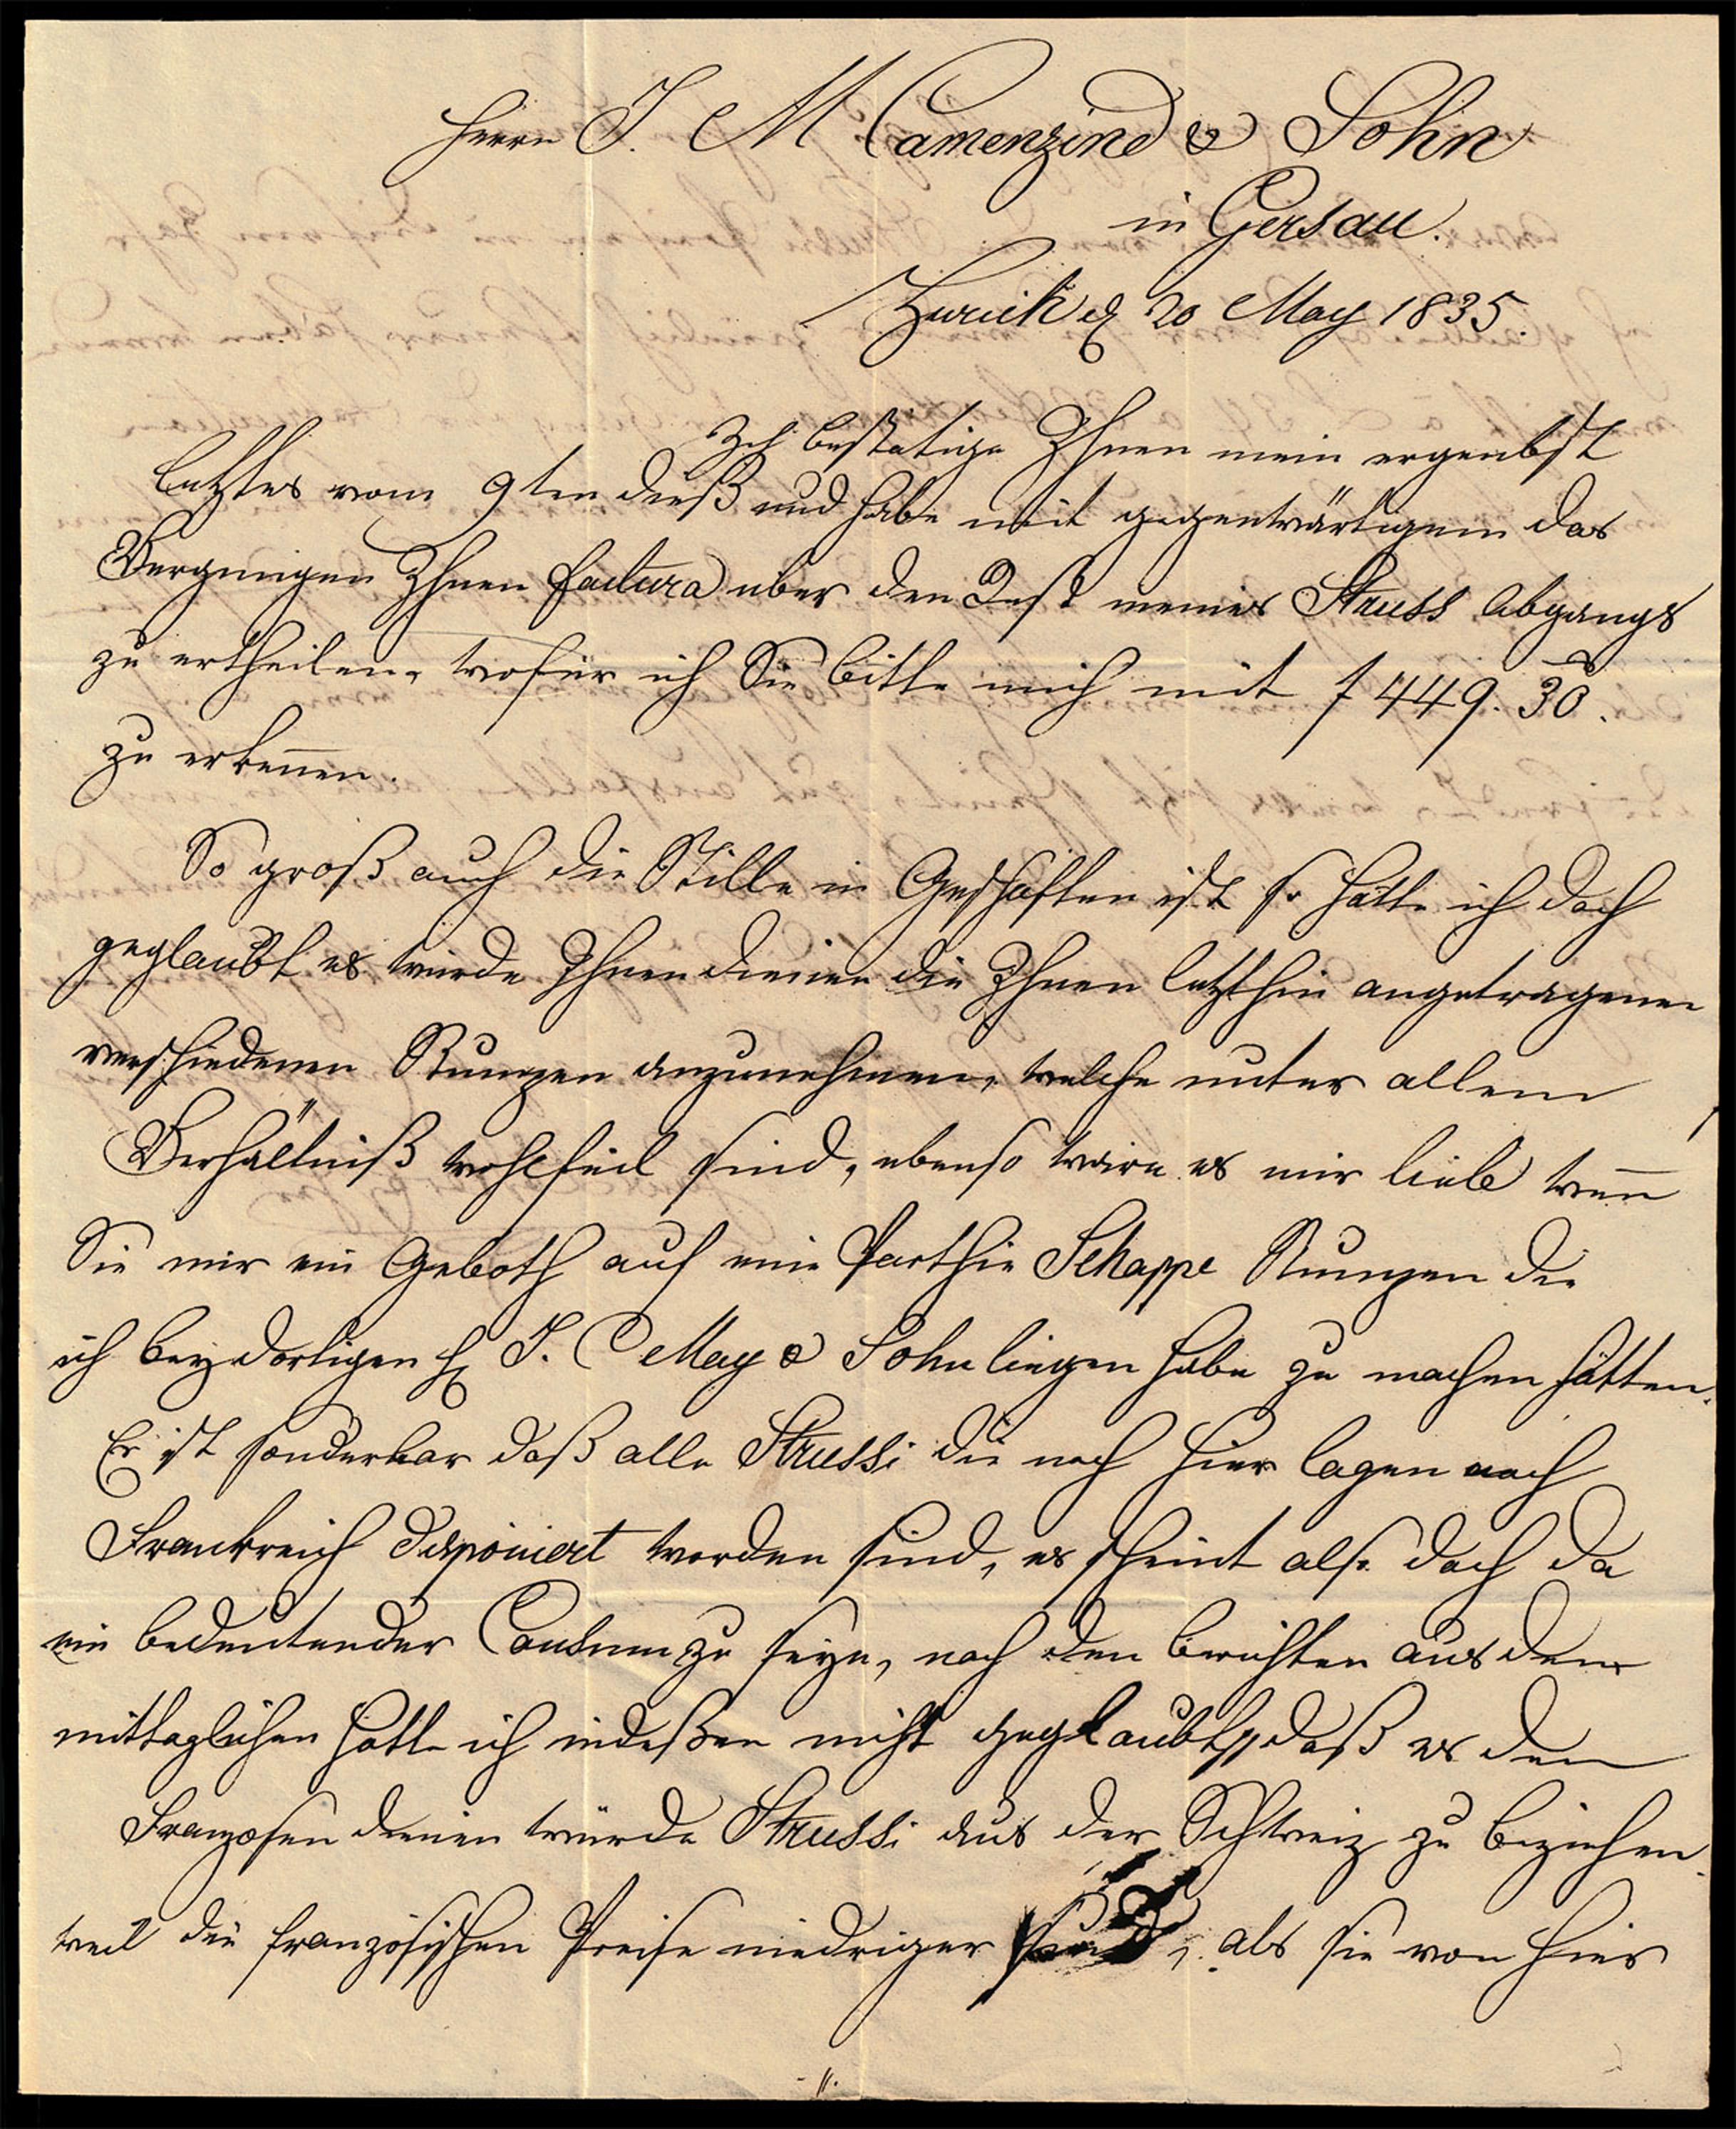 Herrn J. M Camenzind & Sohn
in Gersau.
Zurich d 20 May 1835.
Ich bestatige Ihnen mein ergenbst
letztes vom 9ten dieß und habe mit gegenwärtigem das
Vergnugen Ihnen factura uber den Rest meines Struss Abgangs
zu ertheilen, wofür ich Sie bitte mich mit f 449. 30.
zu erkennen.
So groß auch die Stille in Geschaften ist so hätte ich doch
geglaubt es wurde Ihnen dienen die Ihnen letzthin angetragenen
verschiedenen Stumpen anzunehmen, welche unter allem
Verhältniß wohlfeil sind, ebenso ware es mir lieb wenn
Sie mir ein Geboth auf eine Parthie Schappe Stumpen die
ich bey dortigen H J. C May & Sohn liegen habe zu machen hätten.
Es ist sonderbar daß alle Strussi die noch hier lagen nach
Frankreich disponiert worden sind, es scheint also doch da
ein bedeutender Consum zu seyn, nach den berichten aus dem
mittaglichen hatte ich indeßen nicht geglaubt, daß es den
Franzosen dienen würde Strussi aus der Schweiz zu beziehen
weil die französischen Preise niedriger sind, als sie von hier
//.